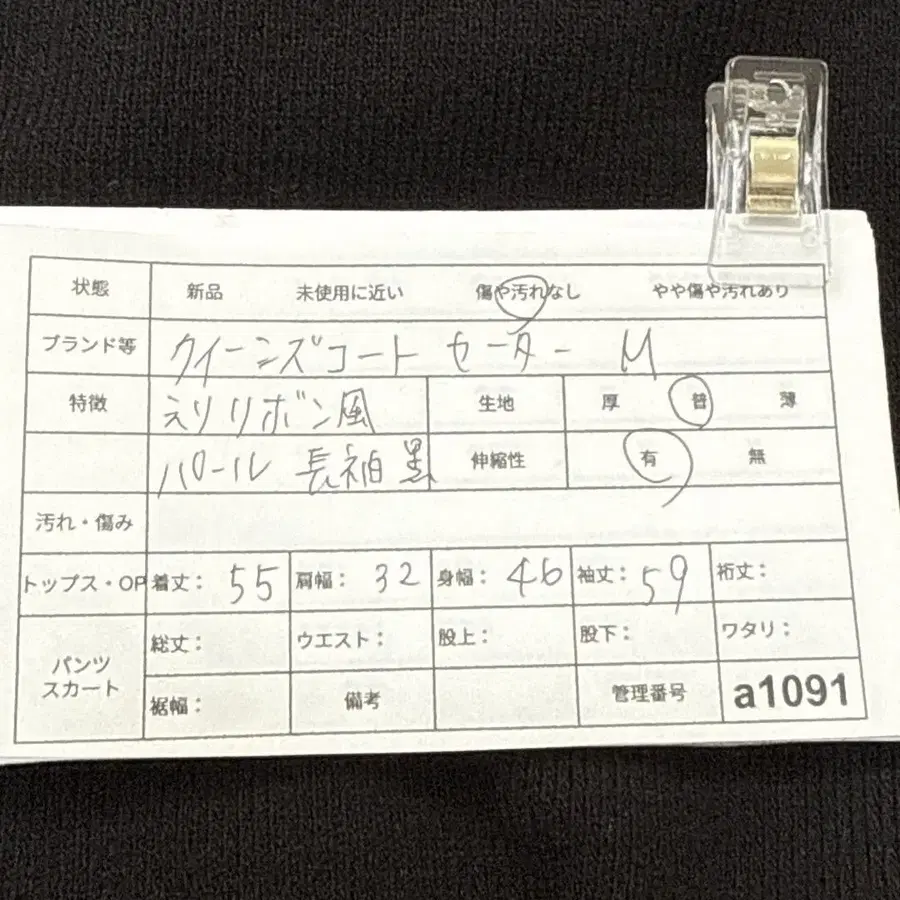 状態 新品 未使用に近い 傷や汚れなし やや傷や汚れあり
ブランド等 クイーンズコート セーター M
特徴 えりリボン風 生地 厚 普 薄
パール 長袖 黒 伸縮性 有 無
汚れ・傷み
トップス・OP 着丈: 55 肩幅: 32 身幅: 46 袖丈: 59 裄丈:
パンツ スカート 総丈: ウエスト: 股上: 股下: ワタリ:
裾幅: 備考 管理番号 a1091